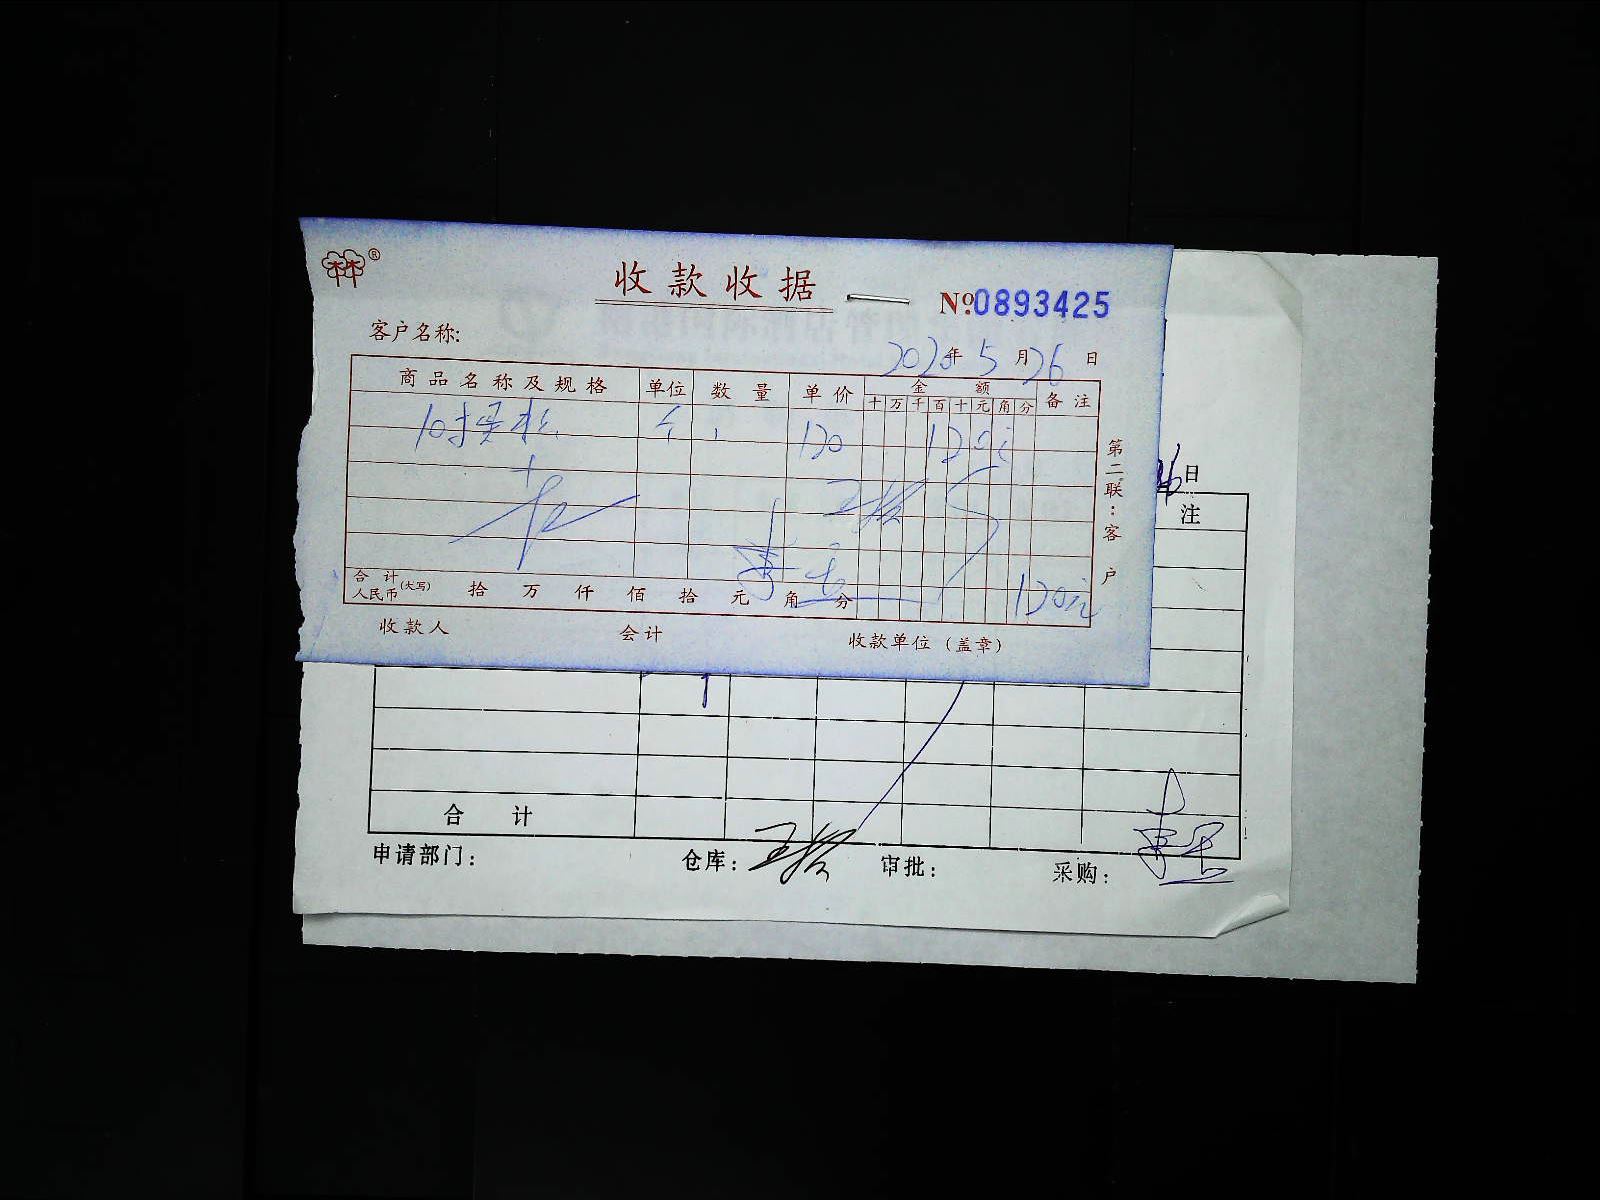 收款收据
No.0893425
客户名称:
2020年5月26日
商品名称及规格 单位 数量 单价 金额 备注
十万千百十元角分
10 个 1 120 120元
王
李
合计人民币(大写) 拾 万 仟 佰 拾 元 角 分 120元
收款人 会计 收款单位(盖章)
第二联:客户
26日
注
合计
申请部门: 仓库:王 审批: 采购:李